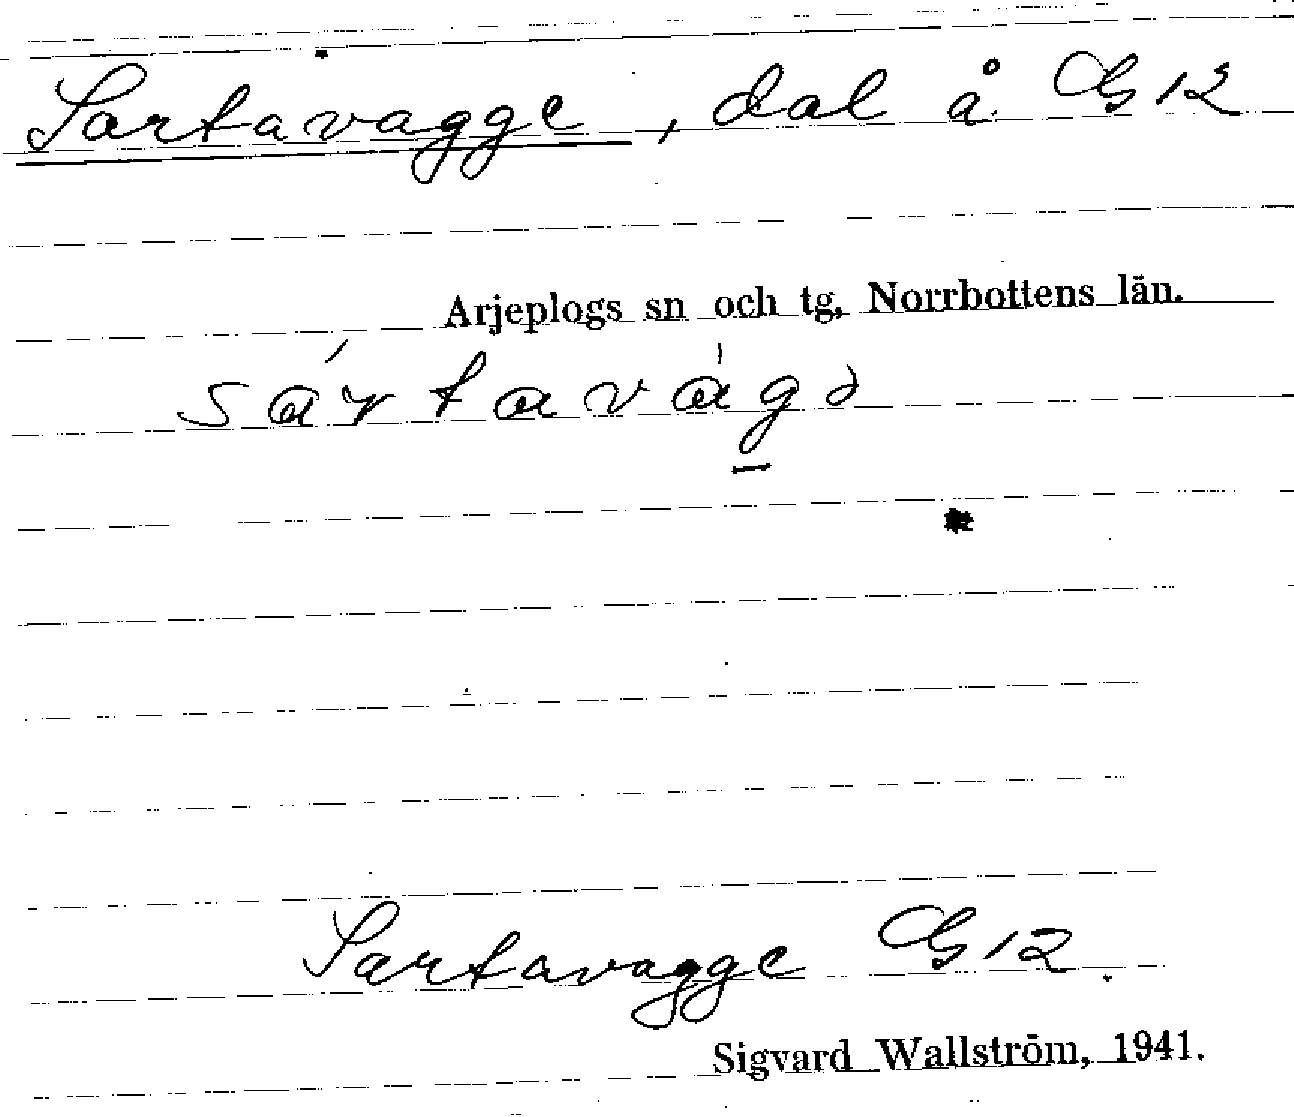 Sartavagge, dal å G 12
Arjeplogs sn och tg, Norrbottens län.
sártavàg̱ə
Sartavagge G 12
Sigvard Wallström, 1941.